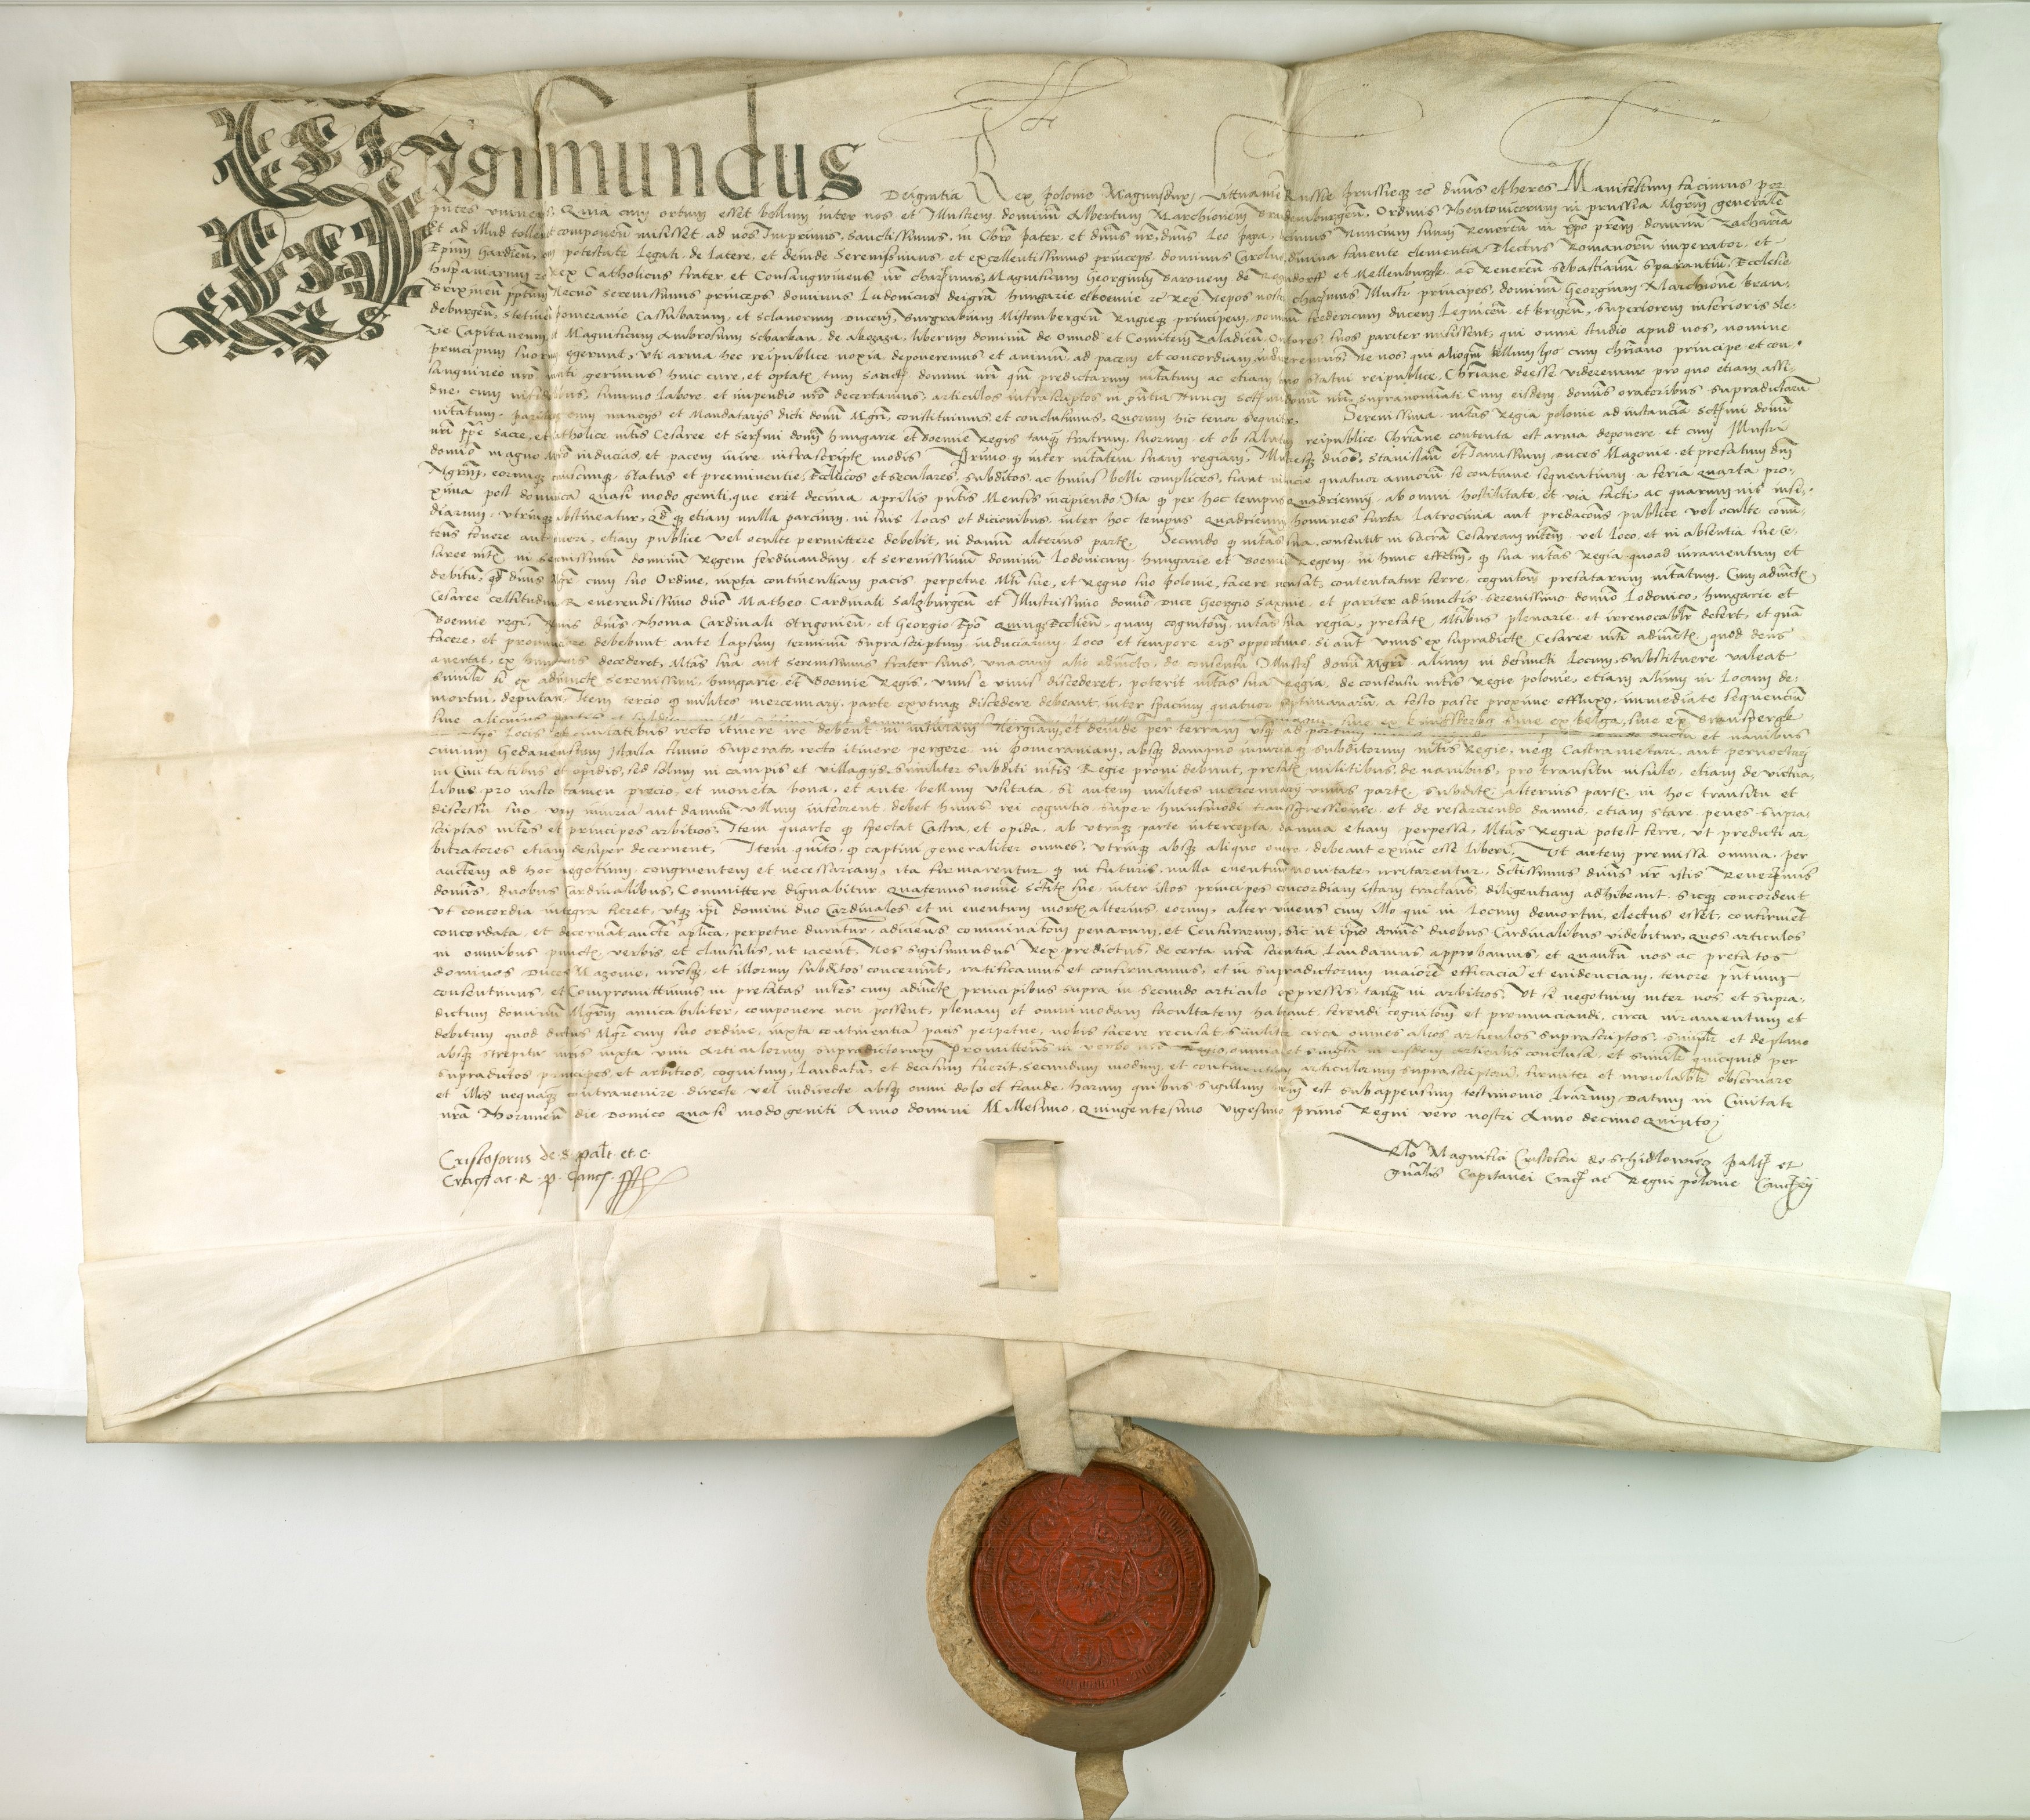 Sigismundus Dei gratia Rex polonie Magnus dux Littuanie Russie prussieq; ꝛc dn̄us et heres Manifestum facimus per
pn̄tes vniuersis, Quia cum ortum esset bellum inter nos et Illustrem dominū Albertum Marchionem Brandemburgen̄, Ordinis Theutonicorum in prussia Mgr̄m generalē
Et ad illud tollend componen̄ misisset ad nos, Imprimis, sanctissimus, in Chr̄o pater, et dn̄us nr̄, dn̄us Leo papa, decimus Nuncium suum Reueren̄ in xp̄o prem̄, dominū Zachariā
Ep̄um Gardien̄, cum potestate Legati de latere, et deinde Serenissimus, et excellentissimus princeps dominus Carolus, diuina fauente clementia Electus Romanorū imperator, et
hispaniarum ꝛc Rex Catholicus frater et Consanguineus nr̄ char̄imus, Magnificum Georgium Baronem de et Mellenburgk ac Reueren̄ sebastianū sperantiū, Ecclesie
Brixinen̄ pp̄tum Necnō serenissimus princeps dominus Ludouicus dei gr̄a hungarie et boemie ꝛc Rex Nepos noster char̄imus Illustr̄ principes, dominū Georgium Marchionē bran,,
deburgen̄, stetinen̄ pomeranie Cassubarum, et sclauorum ducem, Burgrabium Nurembergen̄ Rugieq; principem, dominū fredericum ducem Legnicen̄ et brigen̄, superiorem inferioris sle,,
zie Capitaneum, et Magnificum Ambrosium sarkan, de akazaza, liberum dominū de Onnod et Comitem Zaladien̄, Oratores suos pariter misissent, qui omni studio apud nos, nomine
principum suorum egerunt, vti arma hec reipublice noxia, deponeremus et animū, ad pacem et concordiam adverteremus, Ne nos, qui alioqui bellum hoc cum chr̄iano principe et con,,
sanguineo nr̄o inviti gerimus huic cure, et optat tum sanctj domini nr̄i q̄m predictarum mtatum ac etiam suo statui reipublice, Chr̄iane deesse videremur pro quo etiam assi,,
due, cum infidelibus, summo labore, et impendio nr̄o decertamus, articulos infrascriptos in pn̄tia Nuncij sct̄imi domini nr̄i, supranominati Cum eisdem, dominis oratoribus supradictarū
mtatum, pariter cum nuncijs et Mandatarijs dicti domī Mgr̄i, constituimus et conclusimus, quorum hic tenor sequitur. Serenissima mtas Regia polonie ad instanciā sct̄imi domī
nr̄i pp̄e sacre, et catholice mtis Cesaree et ser̄imi domī hungarie et Boemie Regis tanq̄ fratrum, suorum, et ob salutem reipublice Chr̄iane contenta est arma deponere et cum Illustri
domīo magro nr̄o inducias, et pacem inire infrascriptis modis Primo q̄ inter mtatem suam regiam, Illustresq; duos, stanislaū et Ianussium duces Mazouie, et prefatum dm̄
Mgrm̄, eorumq; cuiuscunq; status et preeminentie, Eccl̄icos et seculares, subditos, ac huius belli complices, fiant inducie quatuor annorū se continue sequentium, a feria quarta pro,,
xima post dominicā quasi modo geniti, que erit decima aprilis pn̄tis Mensis incipiendo, Ita q̄ per hoc tempus quadriennij, ab omni hostilitate, et via facti, ac quarumuis insi,,
diarum, vtrinq; abstineatur, qd̄ q̄ etiam nulla parcium, in suis locis et dicionibus, inter hoc tempus quadriennij homines furta latrocinia aut predacōes publice vel oculte comit,,
tens fouere aut tueri, etiam publice vel oculte permittere debebit, in damnū alterius partis. Secundo q̄ mtas sua, consentit in sacrā Cesaream mtem̄, vel loco, et in absentia sue Ce,,
saree mtis in serenissimū dominū Regem ferdinandum, et serenissimū dominū Lodouicum hungarie et Boemie Regem, in hunc effectū, q̄ sua mtas Regia quoad iuramentum et
debitū, qd̄ dn̄us Mgr̄ cum suo Ordine, iuxta continentiam pacis perpetue Mti sue, et Regno suo polonie, facere recusat, contentatur ferre cognitōem prefatarum mtatum, Cum adiunctis
Cesaree celsitudinis Reuerendissimo dn̄o Matheo Cardinali Salzburgen̄ et Illustrissimo domīo duce Georgio saxonie, et pariter adiunctis serenissimo domīo Lodouico, hungarie et
Boemie regi, dn̄is Thoma Cardinali strigonien̄, et Georgio Ep̄o Quinq; Ecclien̄, quam cognitōem, mtas sua regia, prefatis Mtibus plenarie et irreuocabilr̄ defert, et quā
facere, et promouere debebunt, ante lapsum terminū suprascriptum induciarum, loco et tempore eis oportuno, si aut̄ vnus ex supradictis Cesaree mti adiunctis, quod deus
auertat, ex humanis decederet, Mtas sua aut serenissimus frater suus, vnacum alio adiuncto, de consensu Illustris domī Mgr̄i alium in defuncti locum, substituere valeat
simili si ex adiunctis serenissimi, hungarie et Boemie Regis, vnus e viuis discederet, poterit mtas sua Regia, de consensu mtis Regie polonie, etiam alium in locum de,,
mortui, deputare, Item tercio q̄ milites mercennarij, parte ex vtraq; discedere debeant, inter spacium quatuor septimanarū, a festo pasce proxime effluxo, immediate sequenciū
siue alicuius partis et siue ex siue ex helga, siue ex Brunsbergk
locis et ciuitatibus recto itinere ire debent in insulam Nergiam, et deinde per terram vsq; ad portum et nauibus
ciuium Gedanensium Istulla flumio superato, recto itinere pergere in pomeraniam, absq; dampno iniuriaq; subditorum mtis Regie, neq; Castrametari, aut pernoctarj
in Ciuitatibus et opidis, sed solum in campis et villagijs, similiter subditi mtis Regie prouidebunt, prefatis militibus, de nauibus, pro transitu insule, etiam de victua,,
libus, pro iusto tamen precio, et moneta bona, et ante bellum vsitata, si autem milites mercennarij vnius partis, subditis alterius partis, in hoc transitu et
discessu suo, vim iniuria aut damnū vllum inferrent, debet huius rei cognitio, super huiusmodi transgressione, et de resarciendo damno, etiam stare, penes supra,,
scriptas mtes et principes arbitros, Item quarto q̄ spectat Castra, et opida, ab vtraq; parte intercepta, damna etiam perpessa, Mtas Regia potest ferre, vt predicti ar,,
bitratores etiam desuper decernent, Item quīto, q̄ captiui generaliter omnes, vtrinq; absq; aliquo onere, debeant exnūc esse liberi, Vt autem premissa omnia, per
auctōem ad hoc negotium, congruentem et necessariam, ita firmarentur q̄ in futuris, nulla euentuū nouitate irritarentur, Sctissimus dn̄us nr̄ istis Reuerenis
domīs, duobus Cardinalibus, Committere dignabitur, quatenus nomīe sct̄is sue, inter istos principes concordiam istam tractaūt, diligentiam adhibeant, sicq; concordent
vt concordia integra fieret, vtq; ip̄i domini duo Cardinales et in euentum mortis alterius, eorum, alter viuens cum illo qui in locum demortui, electus esset, confirmēt
concordata, et decernāt aucte ap̄lica, perpetue duratur, adiciens comminatōem penarum, et Censurarum, sic ut ip̄is domīs duobus Cardinalibus videbitur, quos articulos
in omnibus punctis, verbis, et clausulis, ut iacent, Nos sigismundus Rex predictus, de certa nr̄a scientia, laudamus approbamus, et quantū nos ac prefatos
dominos duces Mazouie, nr̄osq; et illorum subditos concernūt, ratificamus et confirmamus, et in supradictorum maiorē efficaciā et euidenciam, tenore pn̄tium
consentimus, et Compromittimus in prefatas mtes cum adiunctis principibus supra in secundo articulo expressis, tanq̄ in arbitros, Vt si negotium inter nos, et supra,,
dictum dominū Mgr̄m, amicabiliter, componere non possent, plenam et omnimodam facultatem habeant, ferendi cognitōem et pronunciandi, circa iuramentum et
debitum quod dictus Mgr̄ cum suo ordine, iuxta continentiā pacis perpetue, nobis facere recusat, similiter circa omnes alios articulos suprascriptos, simplr̄ et de plano
absq; strepitu iuris iuxta vim Articulorum supradictorum Promittens in verbo nr̄o Regio, omnia et singula in eisdem articulis conclusa, et similr̄ quicquid per
supradictos principes, et arbitros, cognitum, laudatū, et decisum fuerit, secundum modum, et continentiam articulorum suprascriptorū, firmiter et inuiolabilr̄ obseruare
et illis nequaq̄ contrauenire directe vel indirecte absq; omni dolo et fraude, harum quibus sigillum nr̄m est subappensum testimonio lr̄arum, Datum in Ciuitate
nr̄a Thorunen̄ die Domīco quasi modo geniti Anno domini Millesimo, quingentesimo vigesimo primo Regni vero nostri Anno decimo quinto
Cristoforus de s palt. et c.
Crac ac. R. p. Canc. sst
Rlo Magnifici Cristofori de schidlowicz palt et
gn̄alis Capitanei Crac ac Regni polonie Cancrij